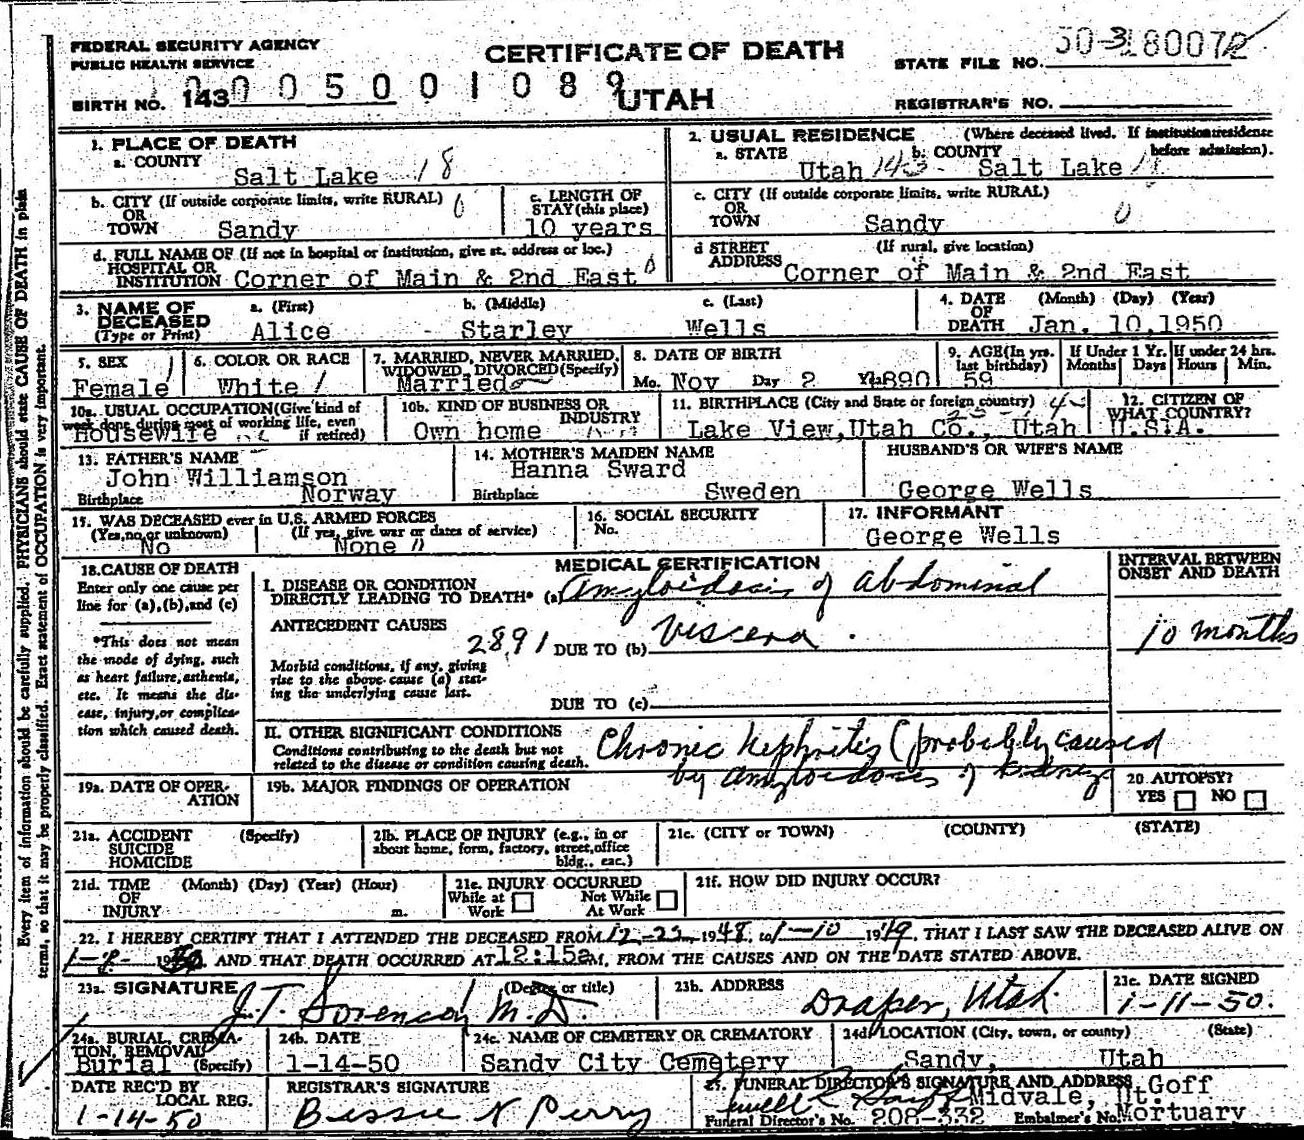 FEDERAL SECURITY AGENCY
PUBLIC HEALTH SERVICE
CERTIFICATE OF DEATH
STATE FILE NO.
BIRTH NO. 143
UTAH
REGISTRAR'S NO.
1. PLACE OF DEATH
a. COUNTY
Salt Lake 18
2. USUAL RESIDENCE (Where deceased lived. If institution:residence before admission).
a. STATE b. COUNTY
Utah 143 Salt Lake
b. CITY (If outside corporate limits, write RURAL) 0
OR
TOWN Sandy
c. LENGTH OF
STAY (this place)
10 years
c. CITY (If outside corporate limits, write RURAL)
OR
TOWN Sandy 0
d. FULL NAME OF (If not in hospital or institution, give st. address or loc.)
HOSPITAL OR
INSTITUTION Corner of Main & 2nd East 0
d STREET (If rural, give location)
ADDRESS Corner of Main & 2nd East
3. NAME OF a. (First) b. (Middle) c. (Last)
DECEASED
(Type or Print) Alice Starley Wells
4. DATE (Month) (Day) (Year)
OF
DEATH Jan. 10,1950
5. SEX
Female
6. COLOR OR RACE
White
7. MARRIED, NEVER MARRIED,
WIDOWED, DIVORCED (Specify)
Married
8. DATE OF BIRTH
Mo. Nov Day 2 1890
9. AGE (In yrs.
last birthday)
59
If Under 1 Yr.
Months Days
If under 24 hrs.
Hours Min.
10a. USUAL OCCUPATION (Give kind of
work done during most of working life, even
Housewife if retired)
10b. KIND OF BUSINESS OR
INDUSTRY
Own home
11. BIRTHPLACE (City and State or foreign country)
Lake View,Utah Co., Utah
12. CITIZEN OF
WHAT COUNTRY?
U.S.A.
13. FATHER'S NAME
John Williamson
Birthplace Norway
14. MOTHER'S MAIDEN NAME
Hanna Sward
Birthplace Sweden
HUSBAND'S OR WIFE'S NAME
George Wells
15. WAS DECEASED ever in U.S. ARMED FORCES
(Yes,no,or unknown) (If yes, give war or dates of service)
No None
16. SOCIAL SECURITY
No.
17. INFORMANT
George Wells
18. CAUSE OF DEATH
Enter only one cause per
line for (a),(b),and (c)
*This does not mean
the mode of dying, such
as heart failure,asthenia,
etc. It means the dis-
ease, injury,or complica-
tion which caused death.
MEDICAL CERTIFICATION
INTERVAL BETWEEN
ONSET AND DEATH
I. DISEASE OR CONDITION
DIRECTLY LEADING TO DEATH* (a) Amyloidosis of Abdominal
ANTECEDENT CAUSES
2891 DUE TO (b) Viscera.
10 months
Morbid conditions, if any, giving
rise to the above cause (a) stat-
ing the underlying cause last.
DUE TO (c)
II. OTHER SIGNIFICANT CONDITIONS
Conditions contributing to the death but not
related to the disease or condition causing death.
Chronic Nephritis (probably caused
by Amyloidosis of Kidneys
19a. DATE OF OPER-
ATION
19b. MAJOR FINDINGS OF OPERATION
20 AUTOPSY?
YES NO
21a. ACCIDENT (Specify)
SUICIDE
HOMICIDE
21b. PLACE OF INJURY (e.g., in or
about home, form, factory, street,office
bldg., eac.)
21c. (CITY or TOWN) (COUNTY) (STATE)
21d. TIME (Month) (Day) (Year) (Hour)
OF
INJURY m.
21e. INJURY OCCURRED
While at Not While
Work At Work
21f. HOW DID INJURY OCCUR?
22. I HEREBY CERTIFY THAT I ATTENDED THE DECEASED FROM 12-23 1948, to 1-10 1949, THAT I LAST SAW THE DECEASED ALIVE ON
AND THAT DEATH OCCURRED AT 12:15a M., FROM THE CAUSES AND ON THE DATE STATED ABOVE.
23a. SIGNATURE (Degree or title)
J.T. Sorenson M.D.
23b. ADDRESS
Draper, Utah
23c. DATE SIGNED
1-11-50.
24a. BURIAL, CREMA-
TION, REMOVAL
Burial (Specify)
24b. DATE
1-14-50
24c. NAME OF CEMETERY OR CREMATORY
Sandy City Cemetery
24d. LOCATION (City, town, or county) (State)
Sandy, Utah
DATE REC'D BY
LOCAL REG.
1-14-50
REGISTRAR'S SIGNATURE
Bessie N Perry
25. FUNERAL DIRECTOR'S SIGNATURE AND ADDRESS Goff
Midvale, Ut.
Funeral Director's No. 208-332 Embalmer's No. Mortuary
Every item of information should be carefully supplied. PHYSICIANS should state CAUSE OF DEATH in plain
terms, so that it may be properly classified. Exact statement of OCCUPATION is very important.